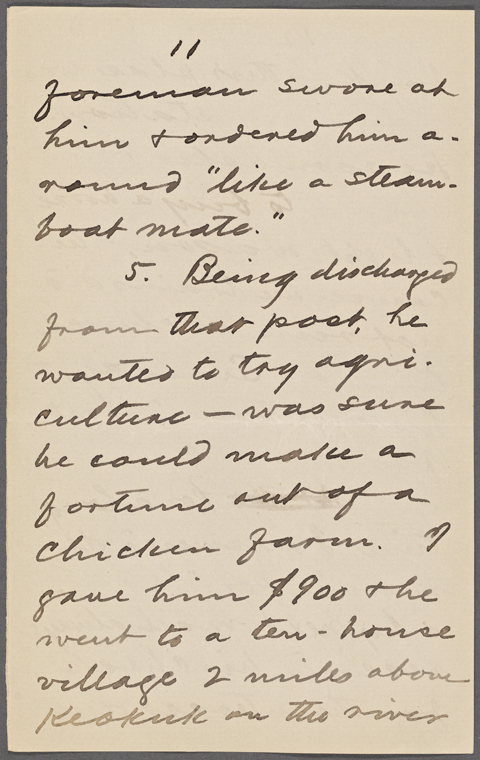 11
foreman swore at
him & ordered him a-
round "like a steam-
boat mate."
5. Being discharged
from that post, he
wanted to try agri-
culture — was sure
he could make a
fortune out of a
chicken farm. I
gave him $900 & he
went to a ten-house
village 2 miles above
Keokuk on the river